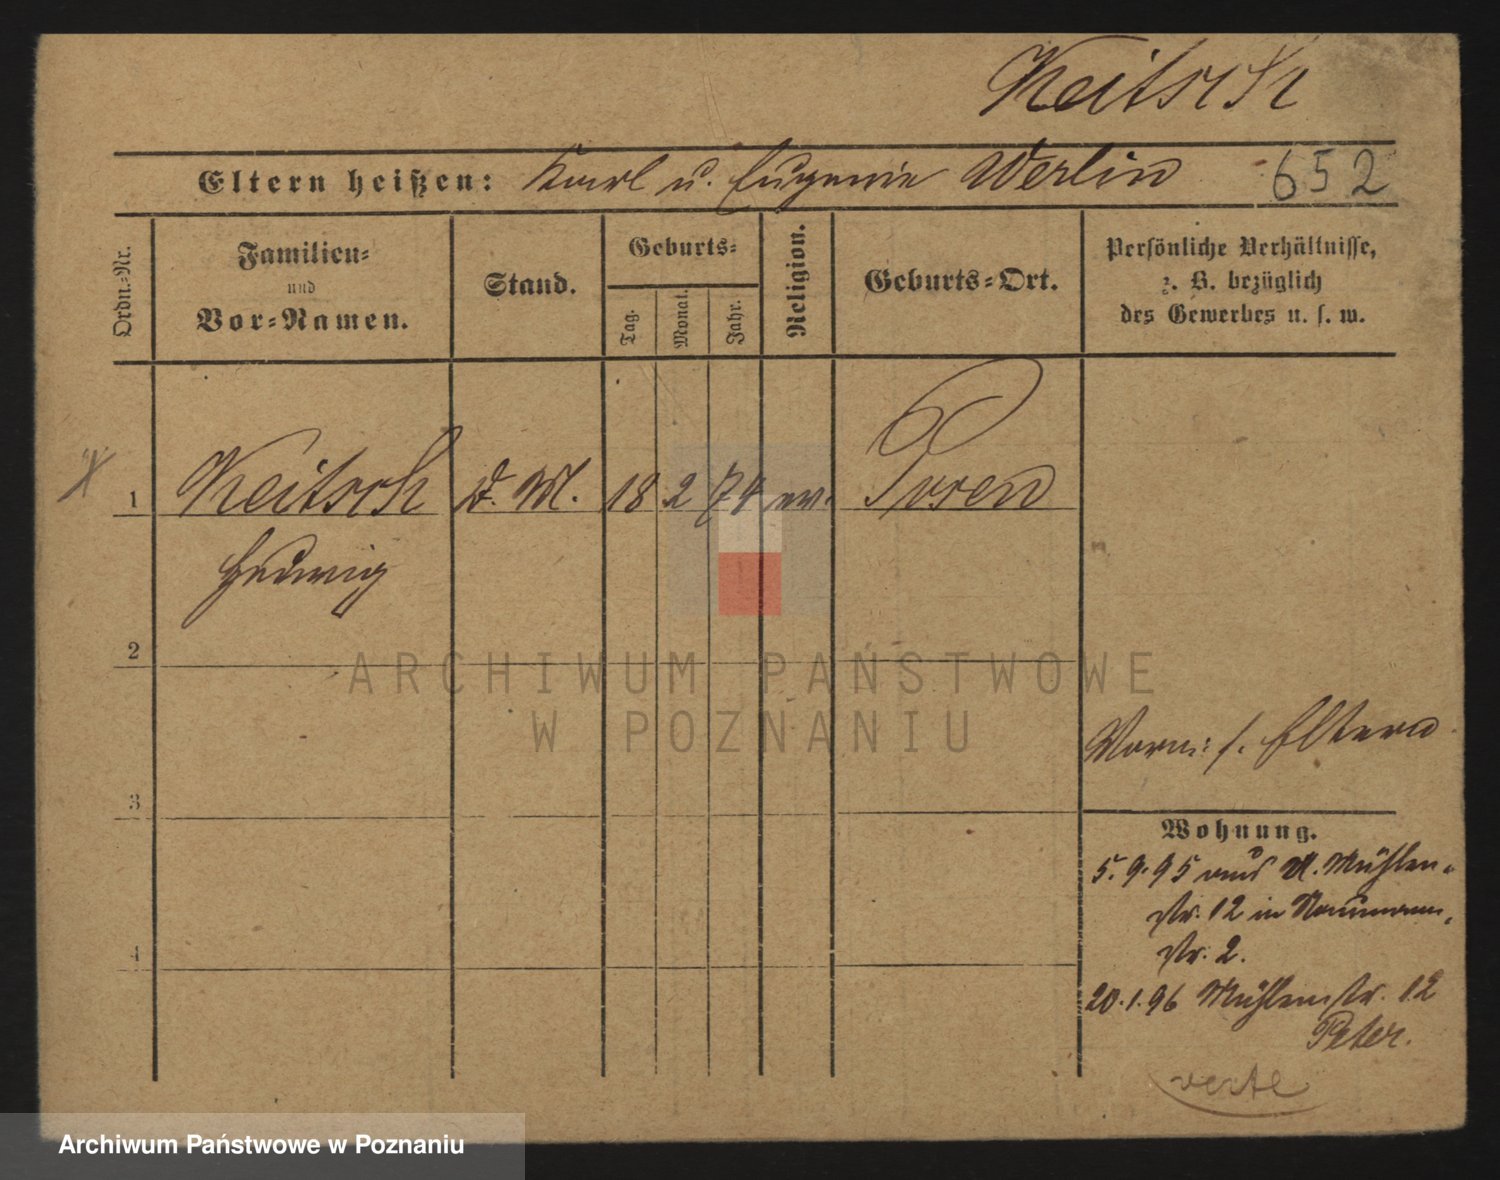 Keitsch
Eltern heißen: Karl u. Eugenie Werlin 652
Ordn.-Nr.
Familien-
und
Vor-Namen.
Stand.
Geburts-
Tag.
Monat.
Jahr.
Religion.
Geburts-Ort.
Persönliche Verhältnisse,
z. B. bezüglich
des Gewerbes u. s. w.
1 Keitsch D. M. 18 2 74 ev. Posen
Hedwig
2
3
4
Vorm: s. Eltern
Wohnung.
5.9.95 aus A. Mühlen-
str. 12 in Naumann-
str. 2.
20.1.96 Mühlenstr. 12
Peter.
verte
ARCHIWUM PAŃSTWOWE
W POZNANIU
Archiwum Państwowe w Poznaniu